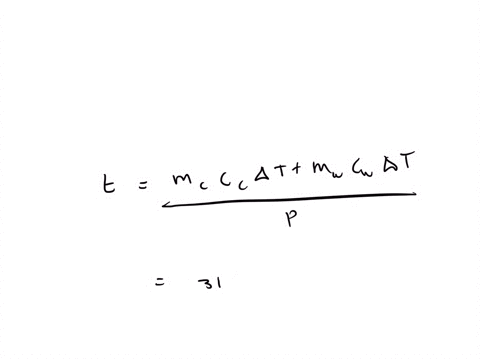 t = m_c C_c ΔT + m_w C_w ΔT
P
= 31